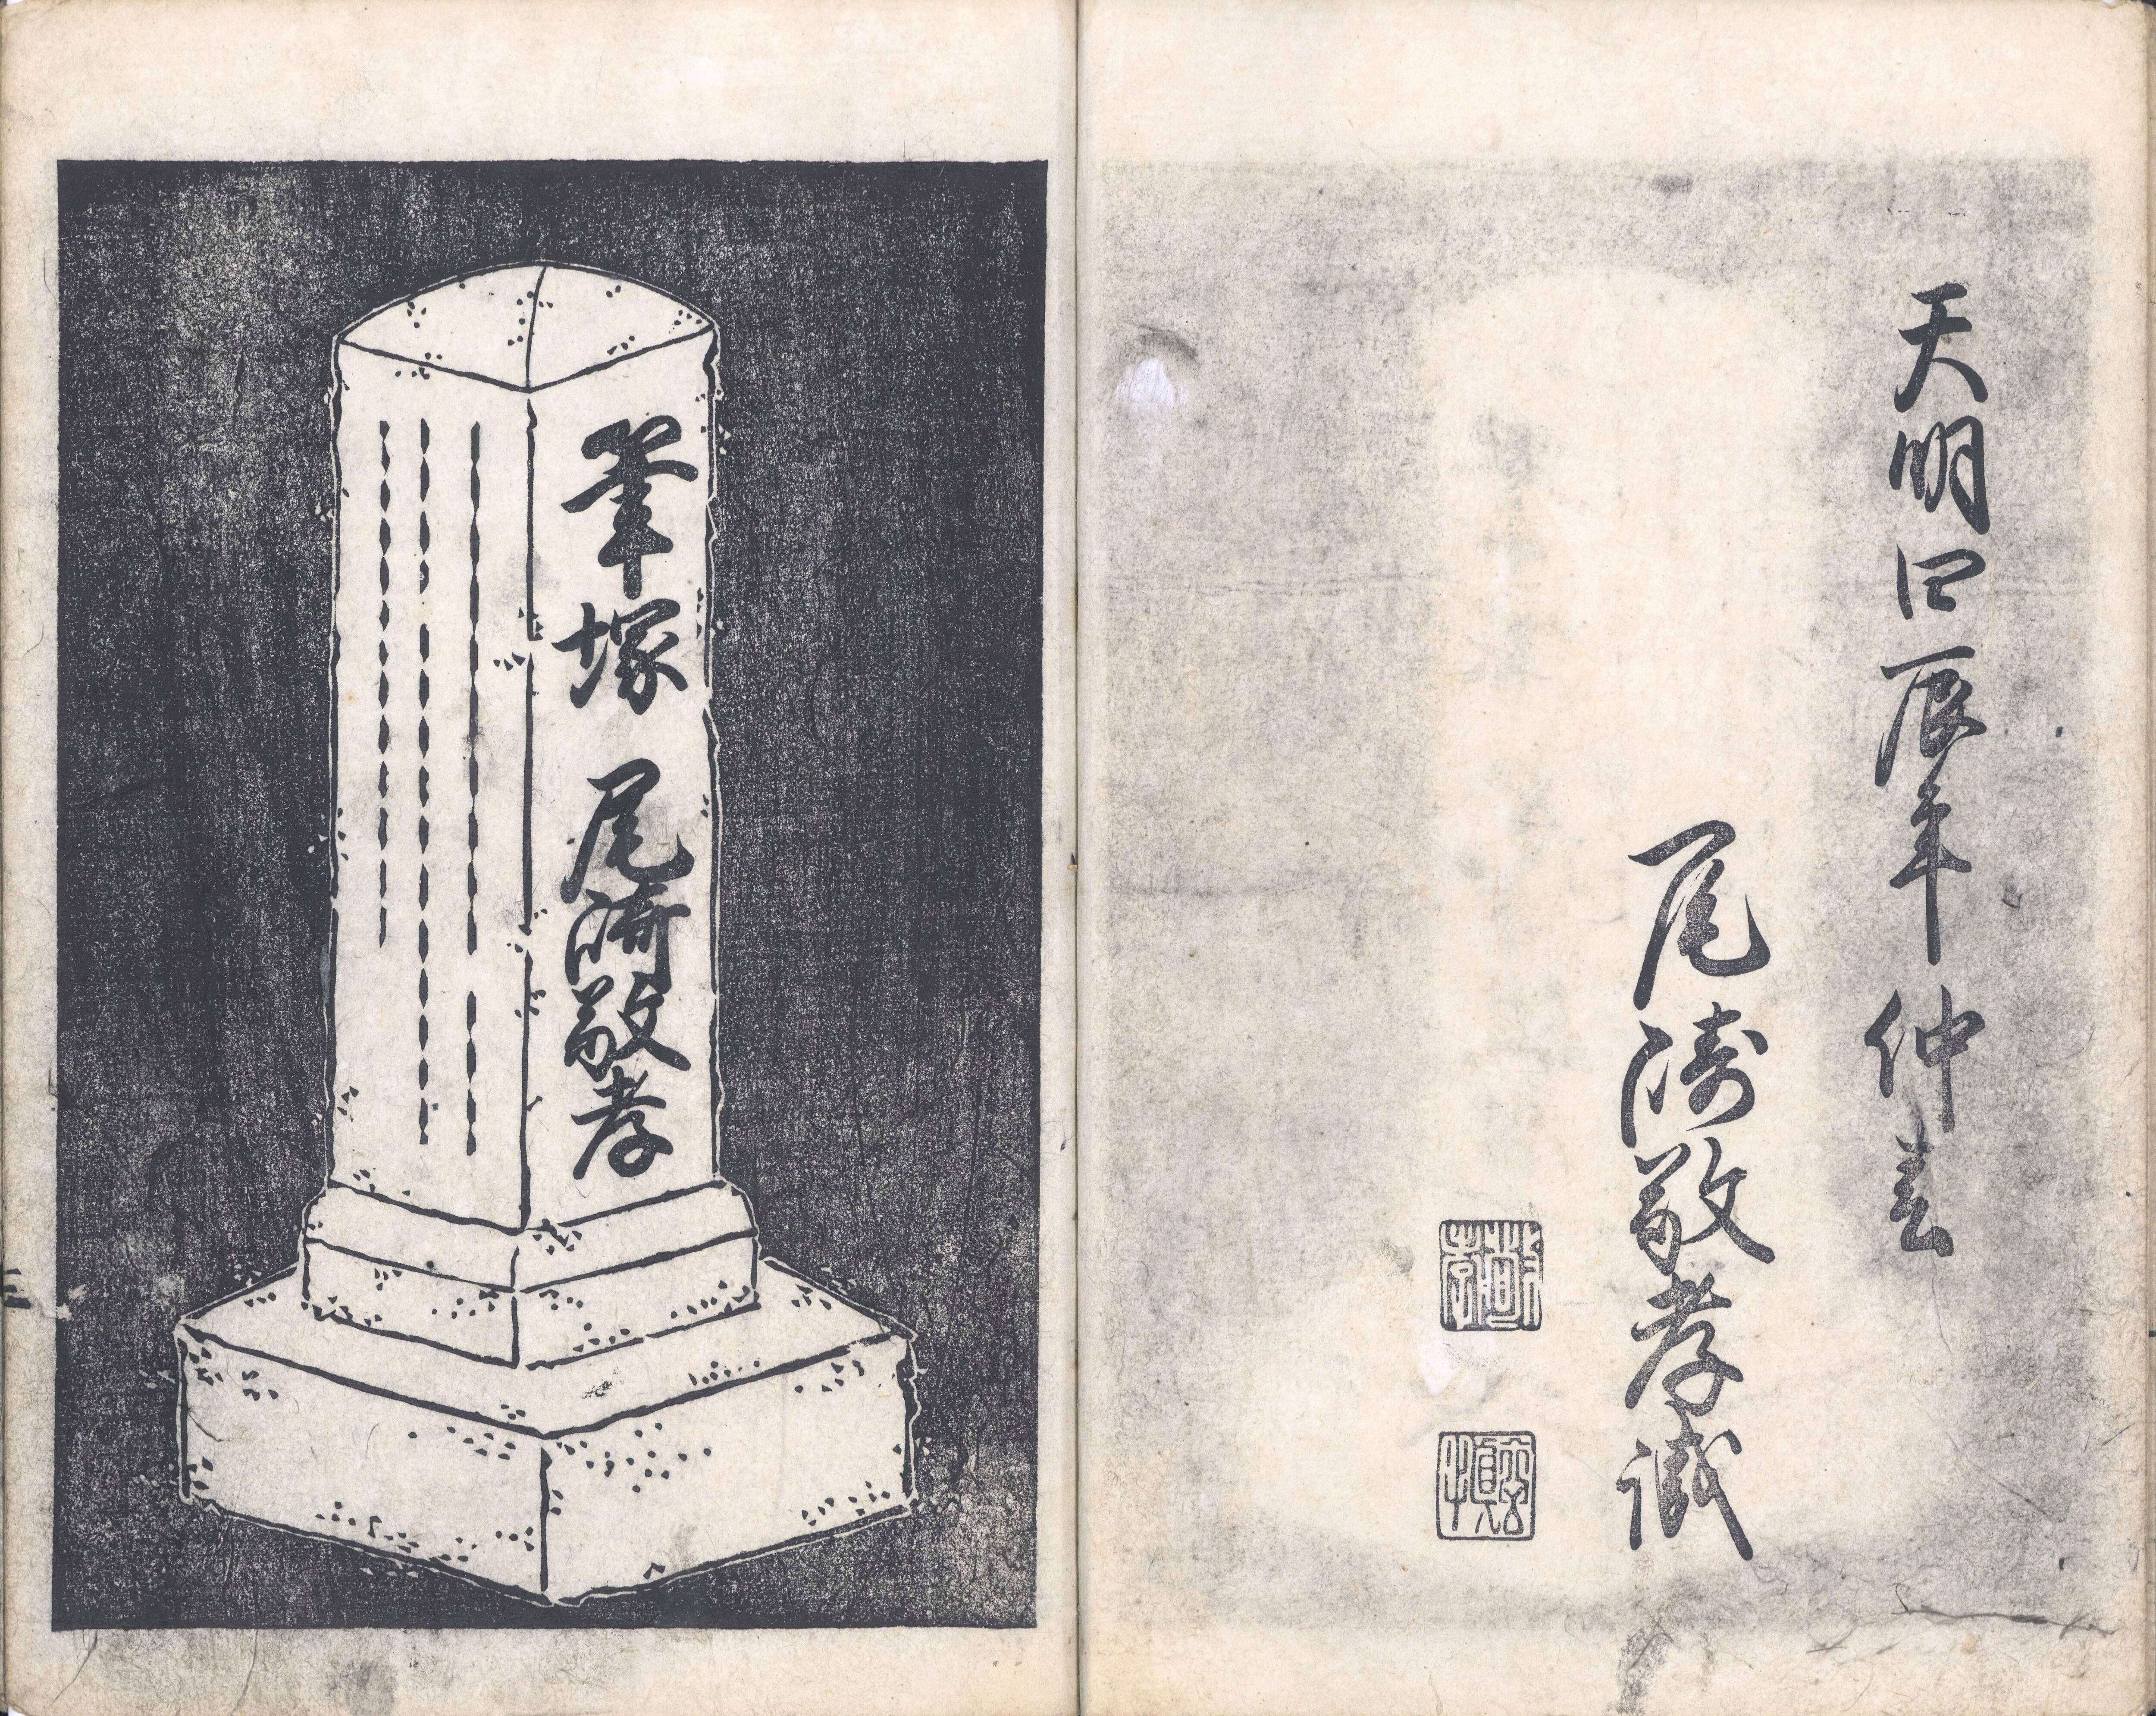 天明四辰年仲春
尾崎敬孝識
敬孝
筆塚 尾崎敬孝